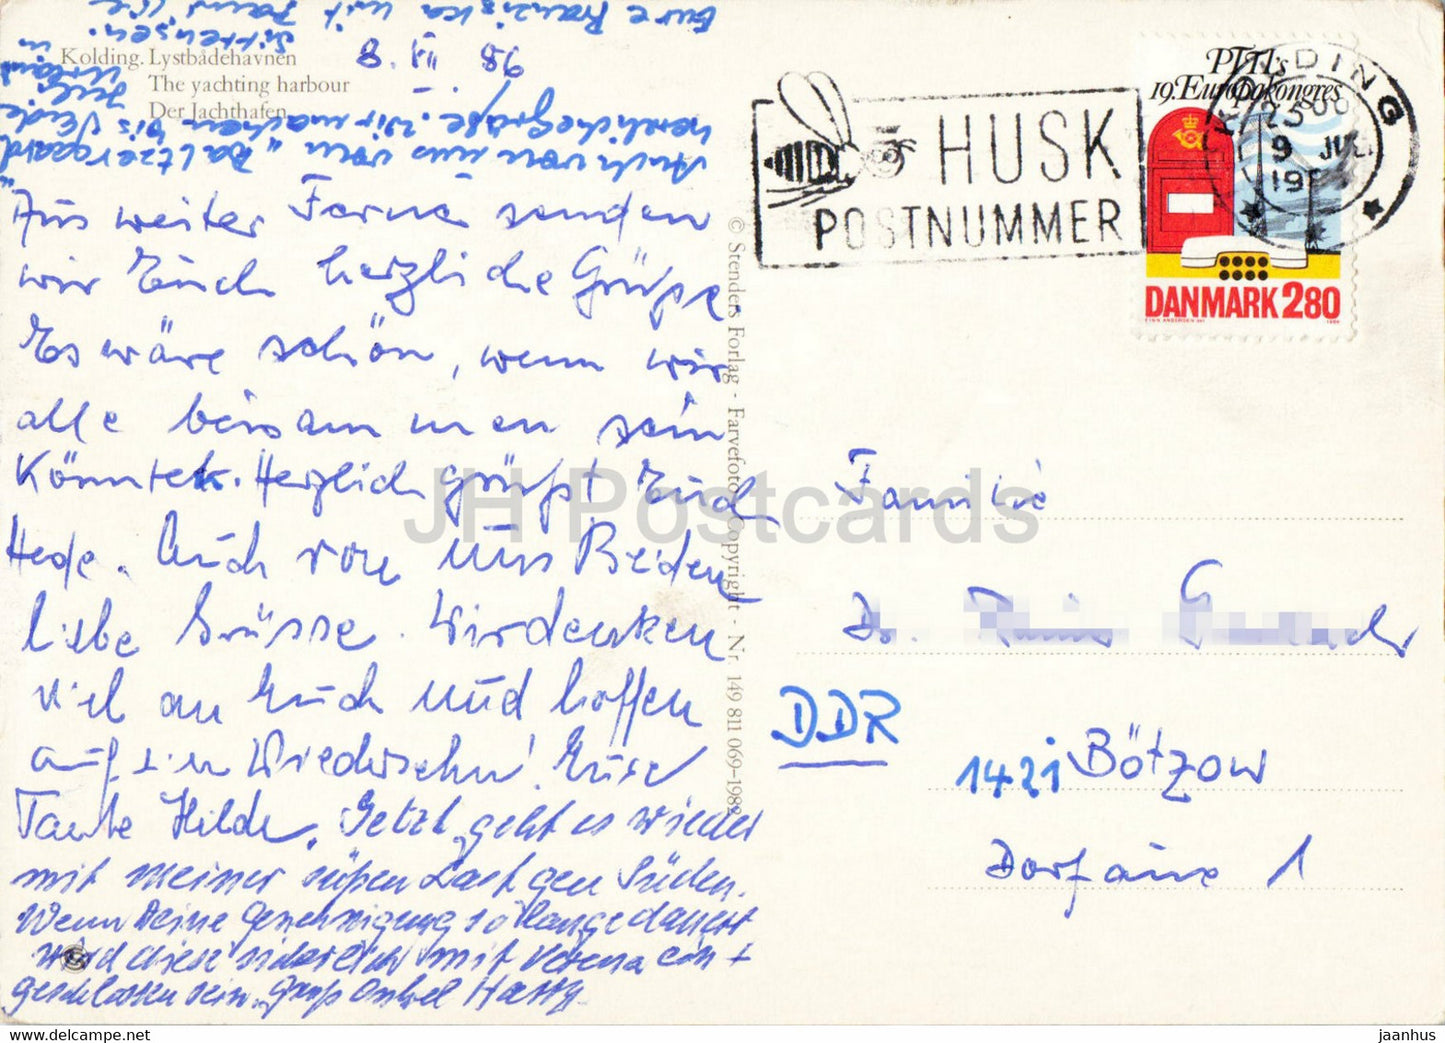 Kolding. Lystbådehavnen
The yachting harbour
Der Jachthafen
Aus weiter Ferne senden
wir Euch herzliche Grüße.
Es wäre schön, wenn wir
alle beisammen sein
könnten. Herzlich grüßt Euch
Hede. Auch von uns Beiden
liebe Grüsse. Wir denken
viel an Euch und hoffen
auf ein Wiedersehn! Eure
Tante Hilde. Jetzt geht es wieder
mit meiner süßen Last gen Süden.
Wenn Deine Genehmigung so lange dauert
wird diese sicherlich mit Verena ein+
geschlossen sein. Gruß Onkel Harry.
Auch von uns vom "Baltzergaard"
herzliche Grüße. Wir machen bis Ende
Juli Urlaub in
Sittensen.
Eure Franziska mit
© Stenders Forlag - Farvefoto - Copyright - Nr. 149 811 069-1982
HUSK
POSTNUMMER
KOLDING
9 JUL
19
PTTI's
19. Europakongres
DANMARK 280
Familie
Dr.
DDR
1421 Bötzow
Dorfaue 1
JH Postcards
jaanhus - delcampe.net